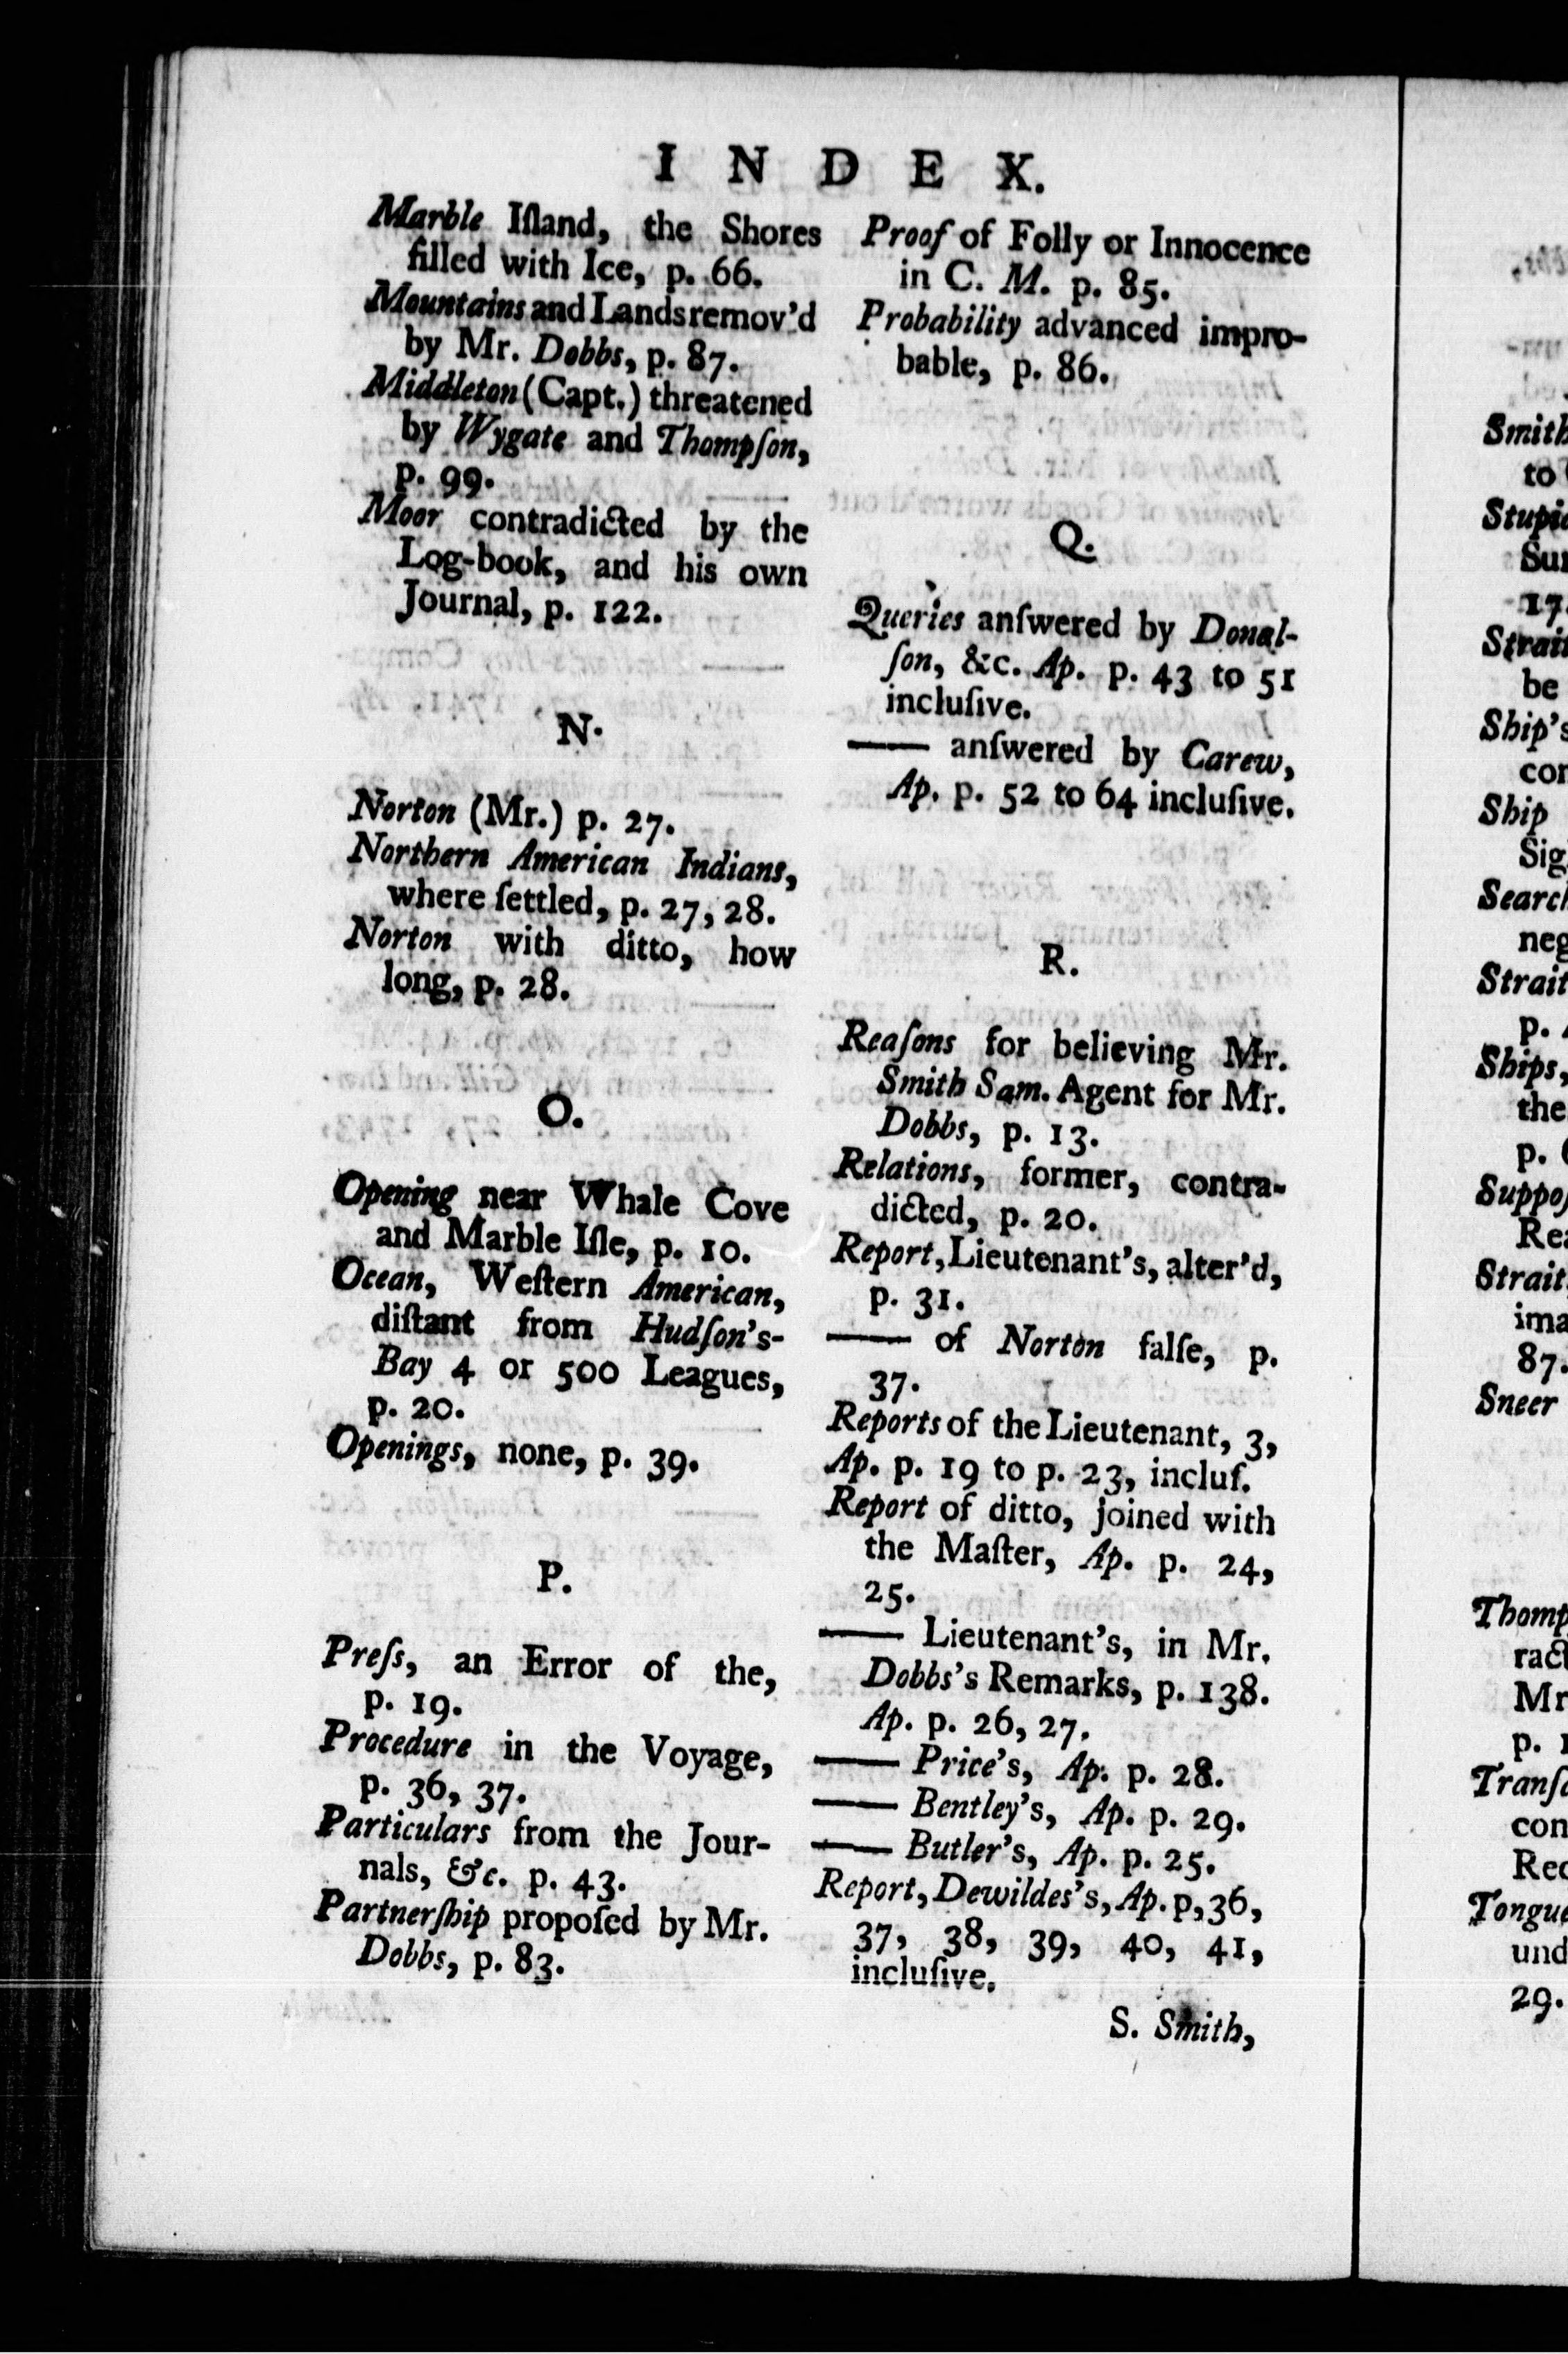 INDEX.
Marble Iſland, the Shores
filled with Ice, p. 66.
Mountains and Lands remov'd
by Mr. Dobbs, p. 87.
Middleton (Capt.) threatened
by Wygate and Thompſon,
p. 99.
Moor contradicted by the
Log-book, and his own
Journal, p. 122.
N.
Norton (Mr.) p. 27.
Northern American Indians,
where ſettled, p. 27, 28.
Norton with ditto, how
long, p. 28.
O.
Opening near Whale Cove
and Marble Iſle, p. 10.
Ocean, Weſtern American,
diſtant from Hudſon's-
Bay 4 or 500 Leagues,
p. 20.
Openings, none, p. 39.
P.
Preſs, an Error of the,
p. 19.
Procedure in the Voyage,
p. 36, 37.
Particulars from the Jour-
nals, &c. p. 43.
Partnerſhip propoſed by Mr.
Dobbs, p. 83.
Proof of Folly or Innocence
in C. M. p. 85.
Probability advanced impro-
bable, p. 86.
Q.
Queries anſwered by Donal-
ſon, &c. Ap. p. 43 to 51
incluſive.
—— anſwered by Carew,
Ap. p. 52 to 64 incluſive.
R.
Reaſons for believing Mr.
Smith Sam. Agent for Mr.
Dobbs, p. 13.
Relations, former, contra-
dicted, p. 20.
Report, Lieutenant's, alter'd,
p. 31.
—— of Norton falſe, p.
37.
Reports of the Lieutenant, 3,
Ap. p. 19 to p. 23, incluſ.
Report of ditto, joined with
the Maſter, Ap. p. 24,
25.
—— Lieutenant's, in Mr.
Dobbs's Remarks, p. 138.
Ap. p. 26, 27.
—— Price's, Ap. p. 28.
—— Bentley's, Ap. p. 29.
—— Butler's, Ap. p. 25.
Report, Dewildes's, Ap. p, 36,
37, 38, 39, 40, 41,
incluſive.
S. Smith,
Smith
to
Sur
17.
be
Ship's
con
Ship
Sig
neg
Strait
p.
Ships,
the
p.
Rea
Strait
ima
87.
Sneer
Mr
p.
con
Rec
und
29.